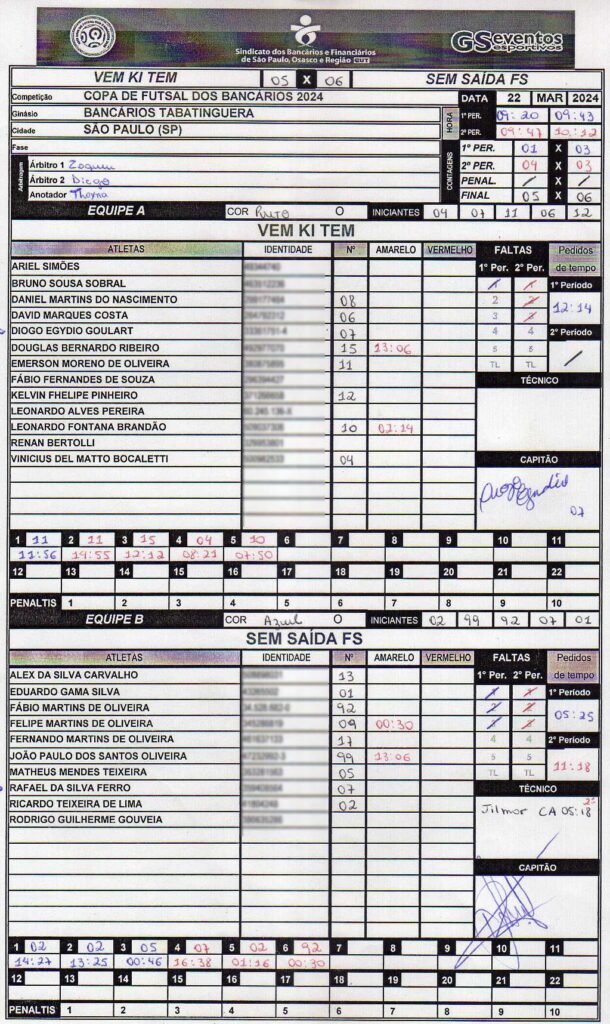 Sindicato dos Bancários e Financiários
de São Paulo, Osasco e Região CUT
GSeventos
esportivos
VEM KI TEM 05 X 06 SEM SAÍDA FS
Competição COPA DE FUTSAL DOS BANCÁRIOS 2024 DATA 22 MAR 2024
Ginásio BANCÁRIOS TABATINGUERA HORA 1º PER. 09:20 09:43
Cidade SÃO PAULO (SP) 2º PER. 09:47 10:12
Fase CONTAGENS 1º PER. 01 X 03
Arbitragem Árbitro 1 2º PER. 04 X 03
Árbitro 2 Diego PENAL. / X /
Anotador FINAL 05 X 06
EQUIPE A COR Preto O INICIANTES 04 07 11 06 12
VEM KI TEM
ATLETAS IDENTIDADE Nº AMARELO VERMELHO FALTAS Pedidos
1º Per. 2º Per. de tempo
ARIEL SIMÕES
BRUNO SOUSA SOBRAL 1 1 1º Período
DANIEL MARTINS DO NASCIMENTO 08 2 2 12:14
DAVID MARQUES COSTA 06 3 3
DIOGO EGYDIO GOULART 07 4 4 2º Período
DOUGLAS BERNARDO RIBEIRO 15 13:06 5 5 /
EMERSON MORENO DE OLIVEIRA 11 TL TL
FÁBIO FERNANDES DE SOUZA TÉCNICO
KELVIN FHELIPE PINHEIRO 12
LEONARDO ALVES PEREIRA
LEONARDO FONTANA BRANDÃO 10 02:14
RENAN BERTOLLI
VINICIUS DEL MATTO BOCALETTI 04 CAPITÃO
07
1 11 2 11 3 15 4 04 5 10 6 7 8 9 10 11
11:56 14:55 12:12 08:21 07:50
12 13 14 15 16 17 18 19 20 21 22
PENALTIS 1 2 3 4 5 6 7 8 9 10
EQUIPE B COR Azul O INICIANTES 02 99 92 07 01
SEM SAÍDA FS
ATLETAS IDENTIDADE Nº AMARELO VERMELHO FALTAS Pedidos
1º Per. 2º Per. de tempo
ALEX DA SILVA CARVALHO 13
EDUARDO GAMA SILVA 01 1 1 1º Período
FÁBIO MARTINS DE OLIVEIRA 92 2 2 05:25
FELIPE MARTINS DE OLIVEIRA 09 00:30 3 3
FERNANDO MARTINS DE OLIVEIRA 17 4 4 2º Período
JOÃO PAULO DOS SANTOS OLIVEIRA 99 13:06 5 5 11:18
MATHEUS MENDES TEIXEIRA 05 TL TL
RAFAEL DA SILVA FERRO 07 TÉCNICO
RICARDO TEIXEIRA DE LIMA 02 Jilmar CA 05:18
RODRIGO GUILHERME GOUVEIA
CAPITÃO
1 02 2 02 3 05 4 07 5 02 6 92 7 8 9 10 11
14:27 13:25 00:46 16:38 01:16 00:30
12 13 14 15 16 17 18 19 20 21 22
PENALTIS 1 2 3 4 5 6 7 8 9 10